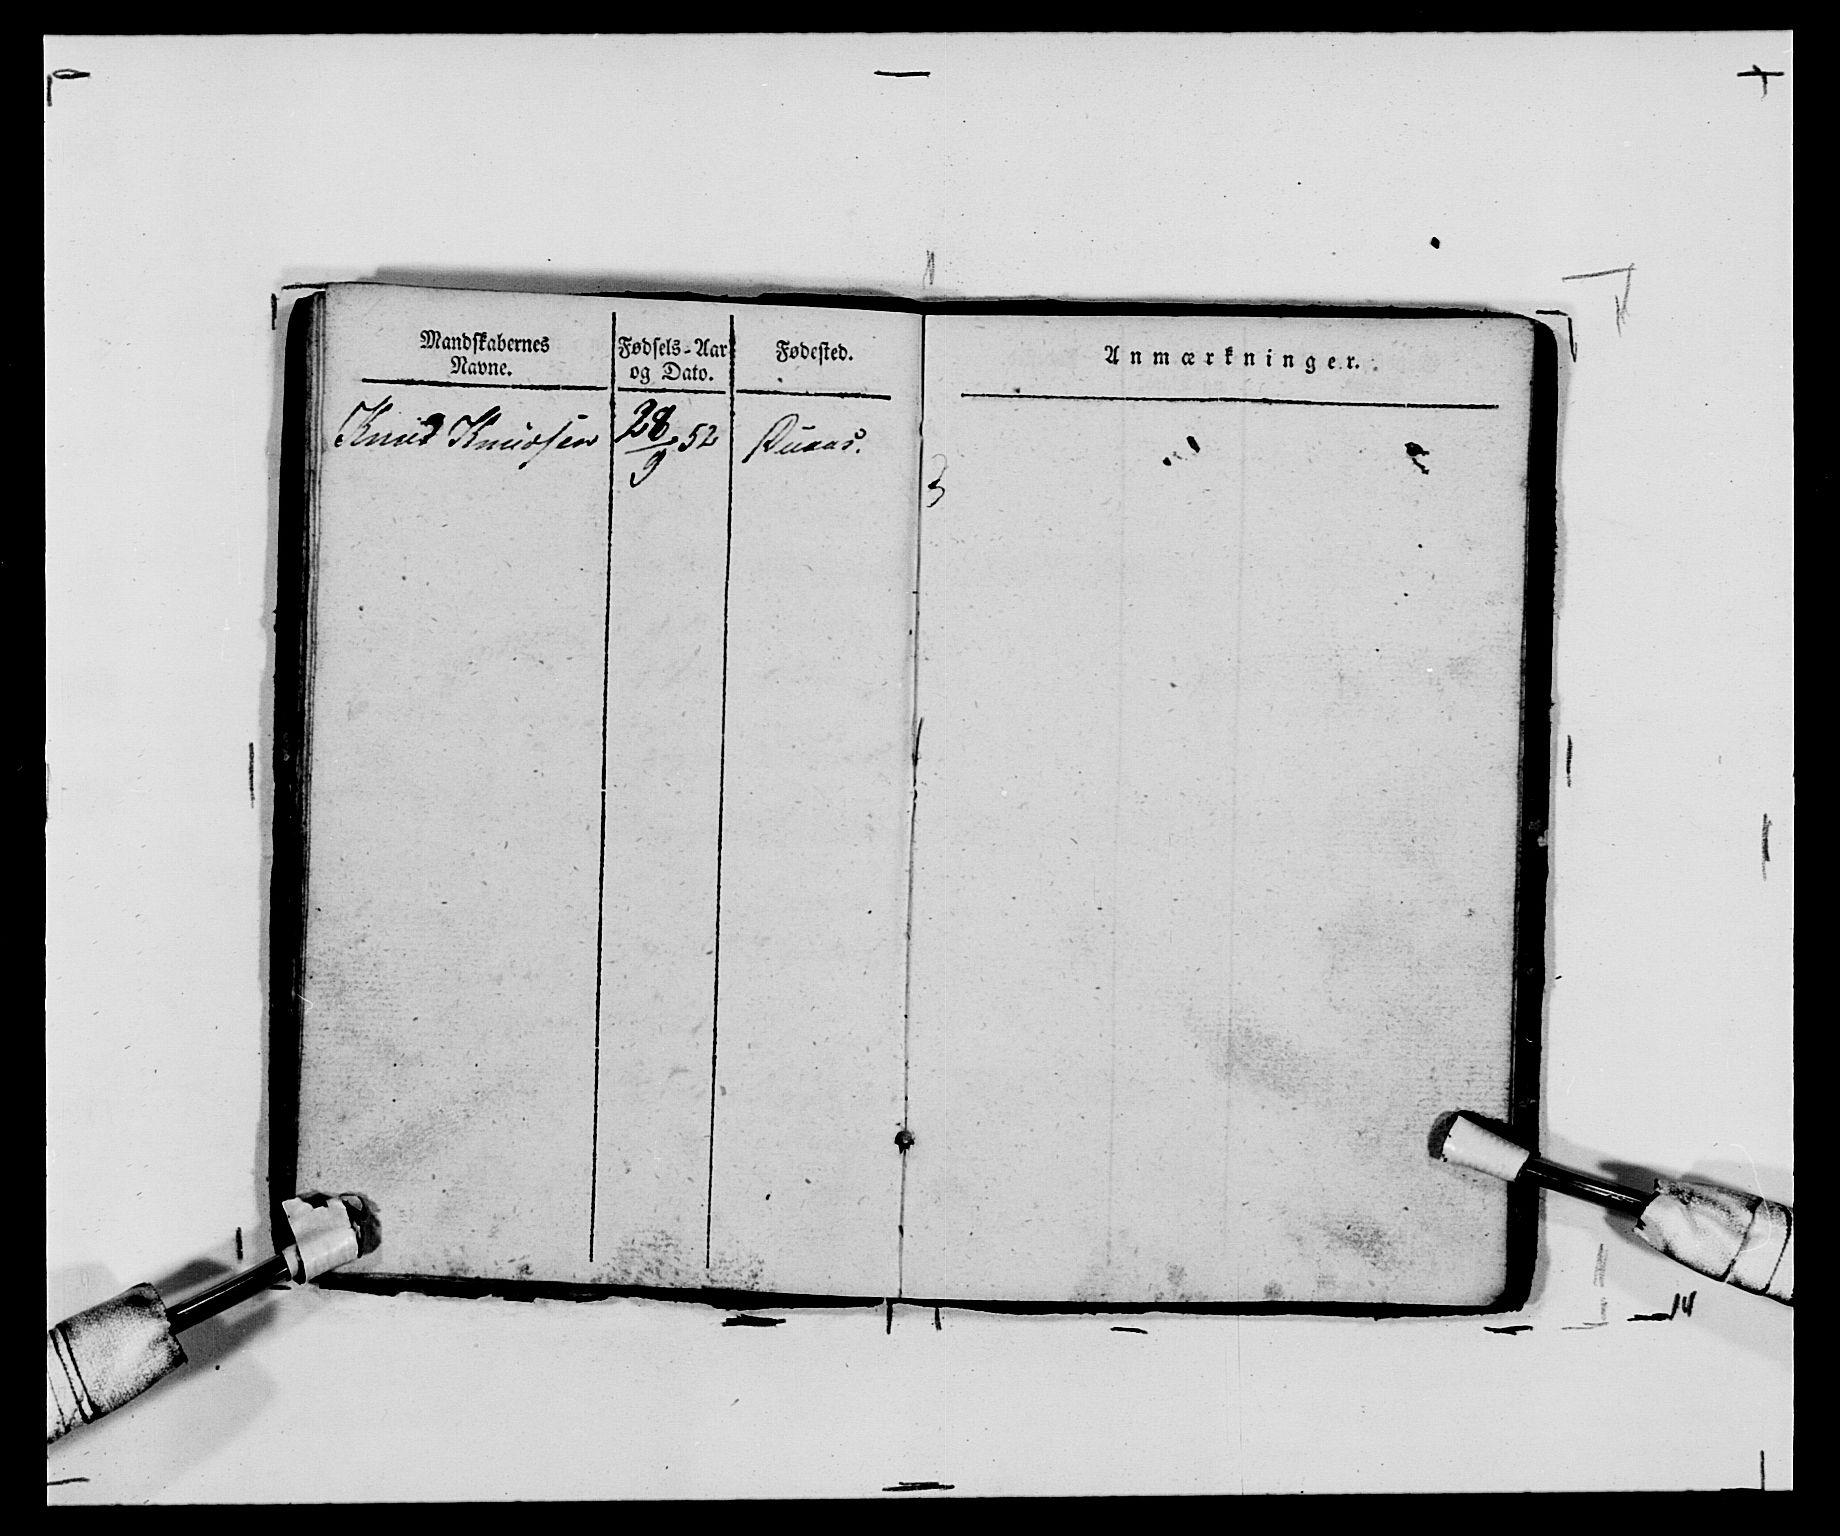 Mandskabernes
Navne.
Fødsels-Aar
og Dato.
Fødested.
Anmærkninger.
Knud Knudsen
28/9 52
14